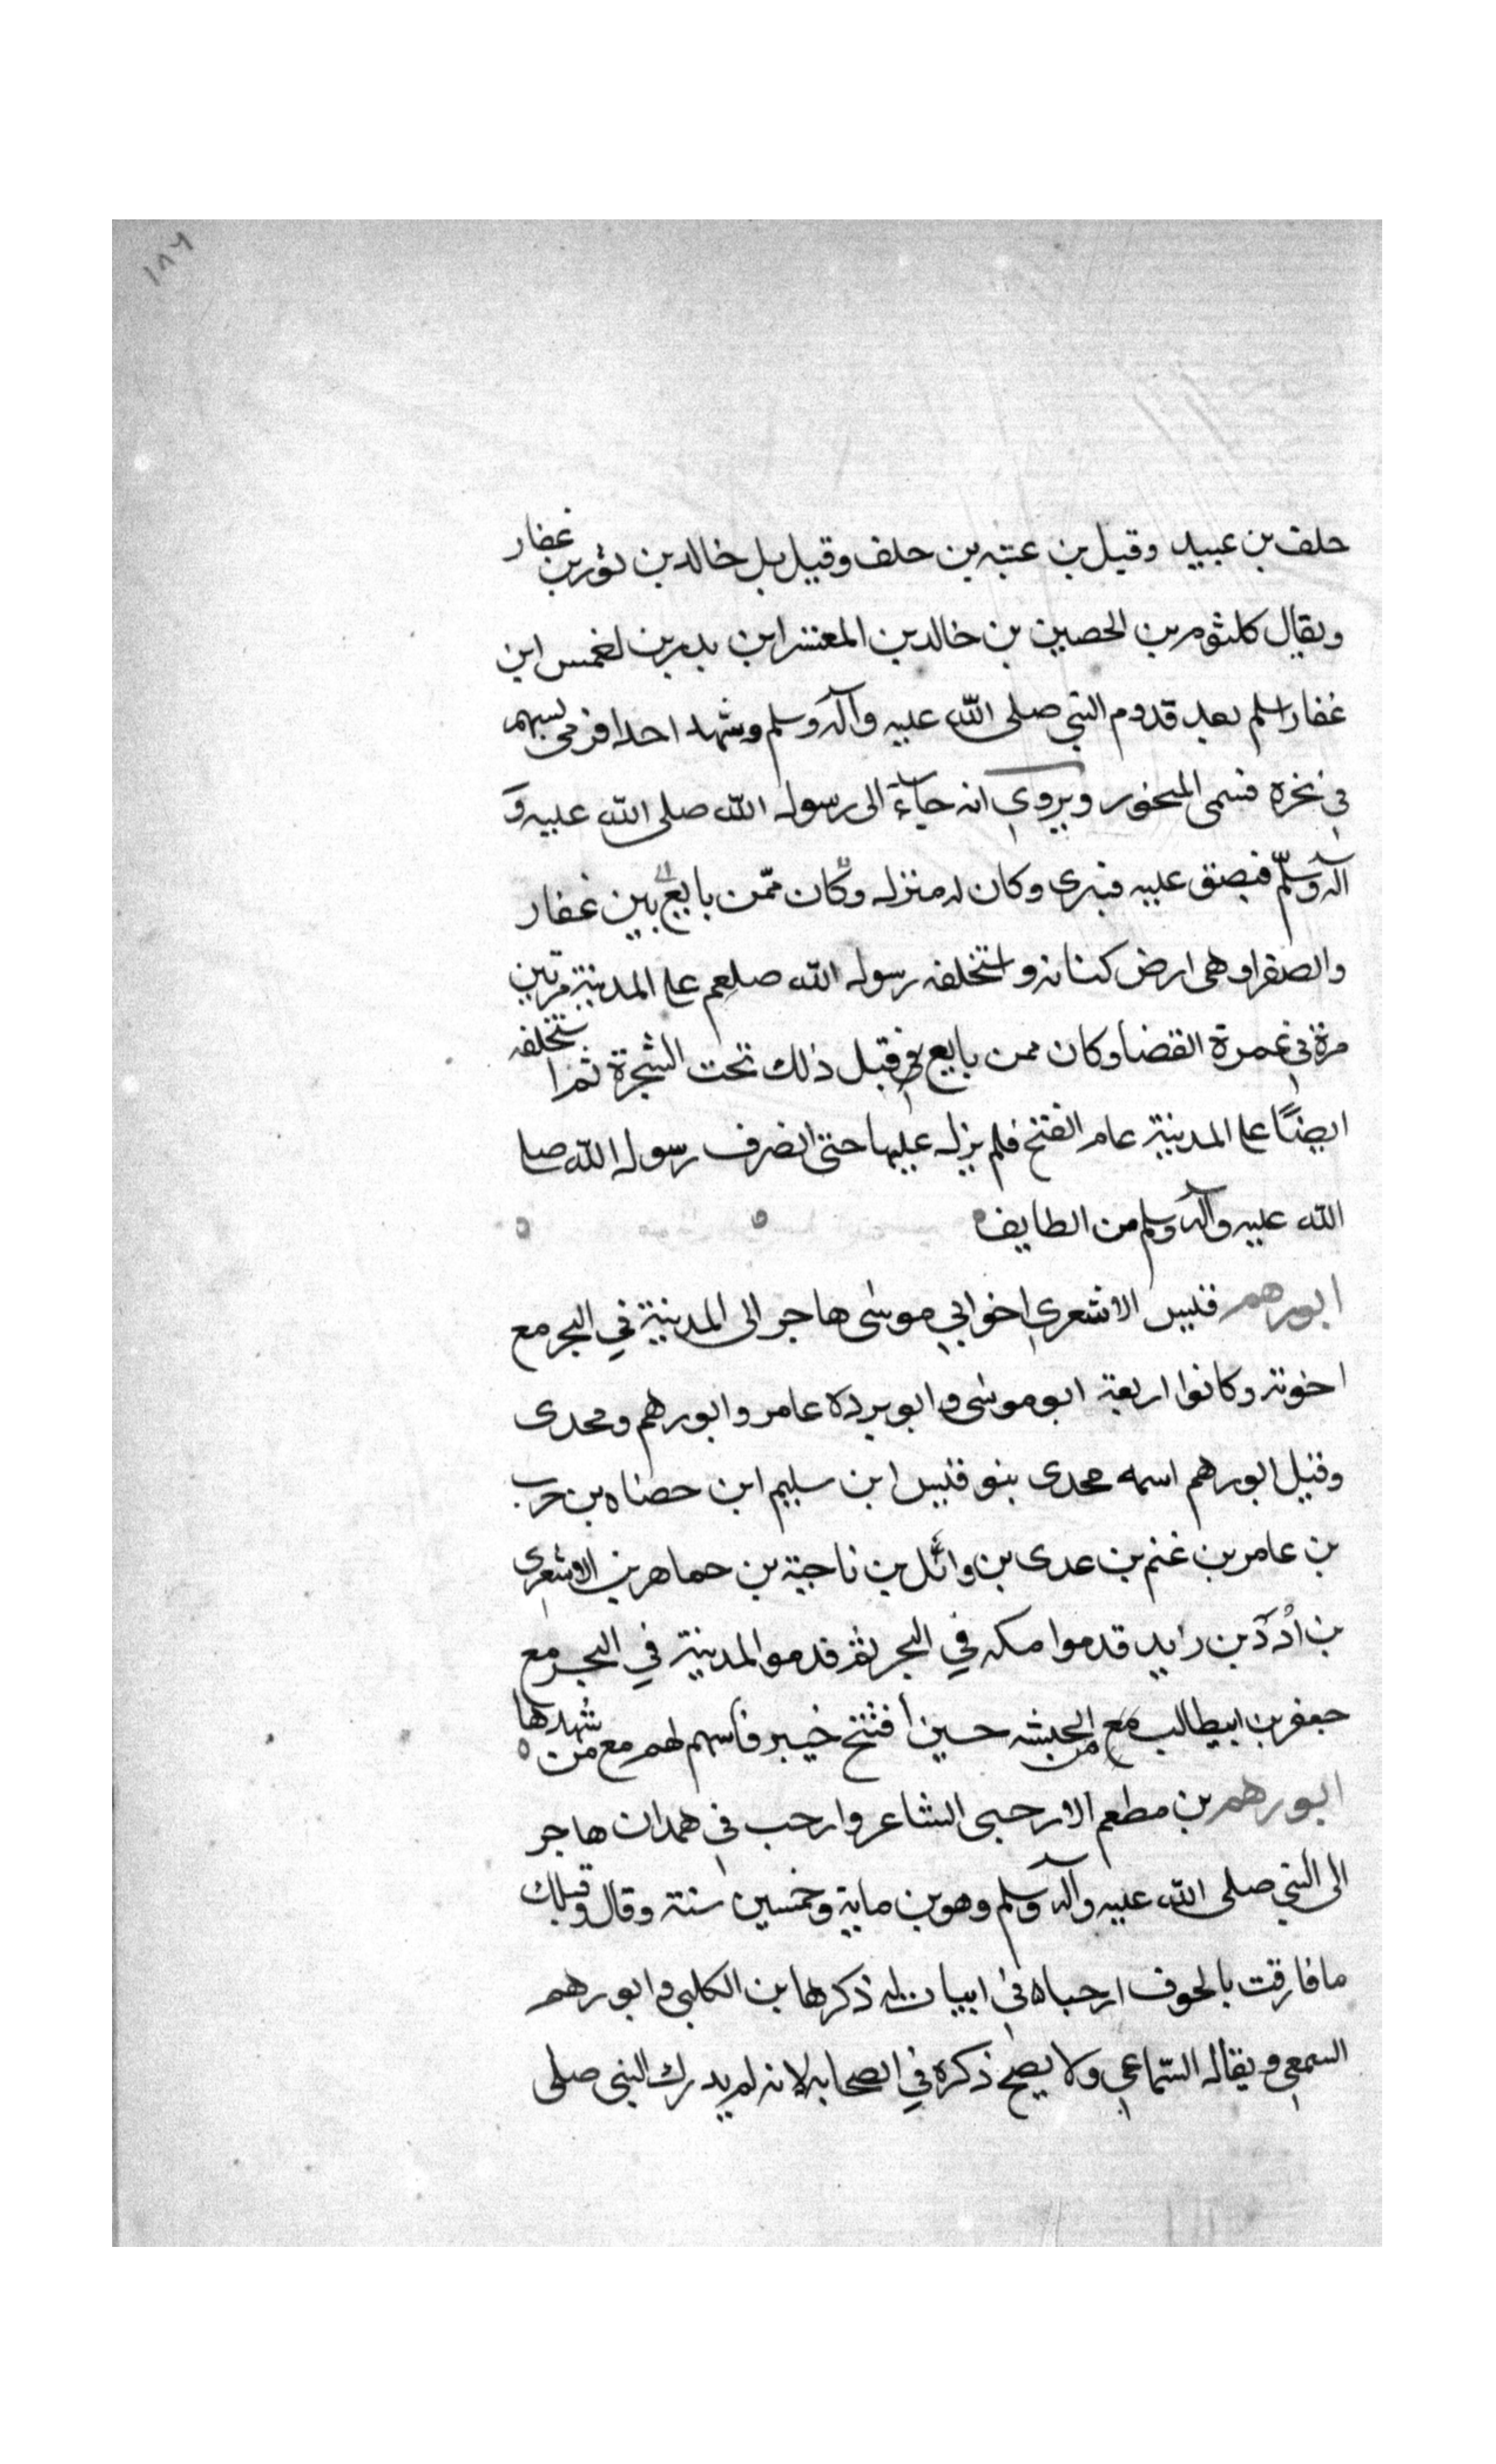 ١٨٦
حلف بن عبيد وقيل بن عتبه بن حلف وقيل بل خالد بن ثور بن غفار
ويقال كلثوم بن الحصين بن خالد بن المعتشر ابن بدر بن لغمس ابن
غفار اسلم بعد قدوم النبي صلى الله عليه وآله وسلم وشهد احدا فرمى بسهم
في نحره فسمى المنحور ويروي انه جآء الى رسول الله صلى الله عليه وَ
آله وسلّم فبصق عليه فبرى وكان له منزل وكان ممّن بايع بين غفار
والصفرا وهى ارض كنانه واستخلفه رسول الله صلعم على المدينة مرتين
مرة في عمرة القضا وكان ممن بايع في قبل ذلك تحت الشجرة ثم استخلفه
ايضًا على المدينة عام الفتح فلم يزل عليها حتى انصرف رسول الله صلى
الله عليه وآله وسلم من الطايف
ابو رهم قيس الاشعري اخو ابي موسى هاجر الى المدينة في البحر مع
اخوته وكانوا اربعة ابو موسى و ابو برده عامر وابو رهم ومحدى
وقيل ابو رهم اسمه محدى بنو قيس ابن سليم ابن حضاه بن حرب
بن عامر بن غنم بن عدى بن وائل بن ناجية بن حماهر بن الاشعري
بن أدَد بن زايد قدموا مكه في البحر ثم قدمو المدينة في البحر مع
جعفر بن ابيطالب مع من الحبشه حسين أفتتح خيبر فاسهم لهم مع من شهدها
ابو رهم بن مطعم الارحبى الشاعر وارحب في همدان هاجر
الى النبي صلى الله عليه وآله وسلم وهو بن ماية وخمسين سنة وقال وقبلك
ما فارقت بالحوف ارحباه في ابيات له ذكرها بن الكلبي و ابو رهم
السمعي ويقال السّماعي ولا يصح ذكره في الصحابه لانه لم يدرك النبي صلى